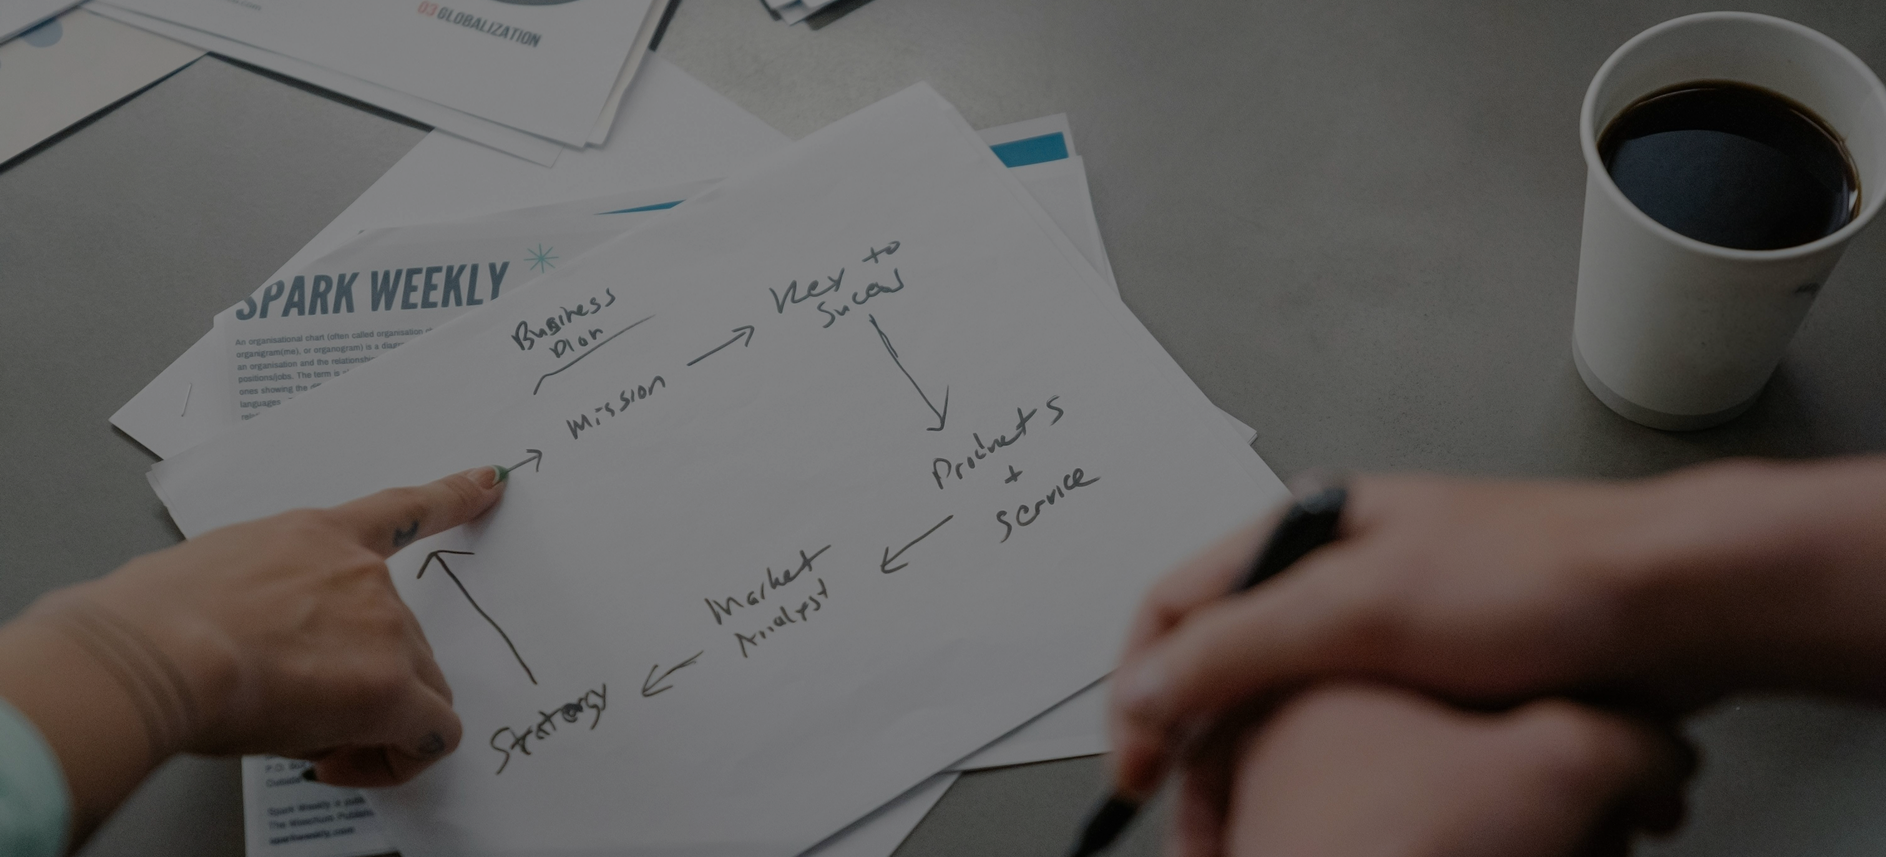 03 GLOBALIZATION
SPARK WEEKLY
An organisational chart (often called organisation
organigram(me), or organogram) is a
an organisation and the
positions/jobs. The term is
ones showing the
languages
Business
Plan
Mission
Key to
Success
Products
+
Service
Market
Analyst
Strategy
P.O.
Outside
Spark Weekly is
The
sparkweekly.com